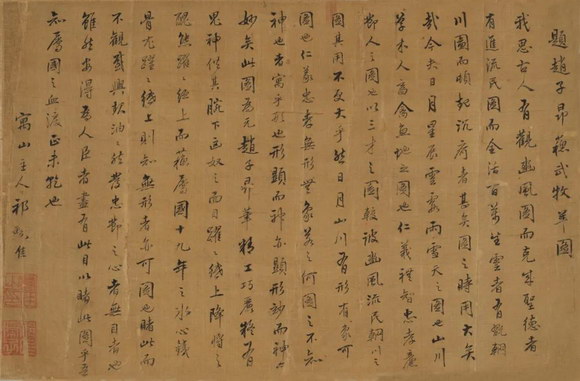 題趙子昂蘇武牧羊圖
我思古人有觀豳風圖而克昇聖德者
有進流民圖而全活百萬生靈者有覽輞
川圖而頓起沉疴者甚矣圖之時用大矣
哉今夫日月星辰雲雷雨雪天之圖也山川
草木人畜禽魚地之圖也仁義禮智忠孝廉
節人之圖也以三才之圖較彼豳風流民輞川之
圖其用不大乎然日月山川有形有象可
圖也仁義忠孝無形無象若之何圖之不知
神也者寓乎形也形顯而神亦顯形妙而神亦
妙矣此圖為元趙子昂筆精工巧麗將有
鬼神供其腕下匈奴之面目躍々紙上降將之
靦然躍々紙上而蘇屬國十九年之冰心鐵
骨尤躍々紙上則知無形者亦可圖也睹此而
不觀感興起油々然發忠節之心者無目者也
雖然安得為人臣者盡有此目以睹此圖乎吾
知屬國之血淚正未乾也
寓山主人祁彪佳